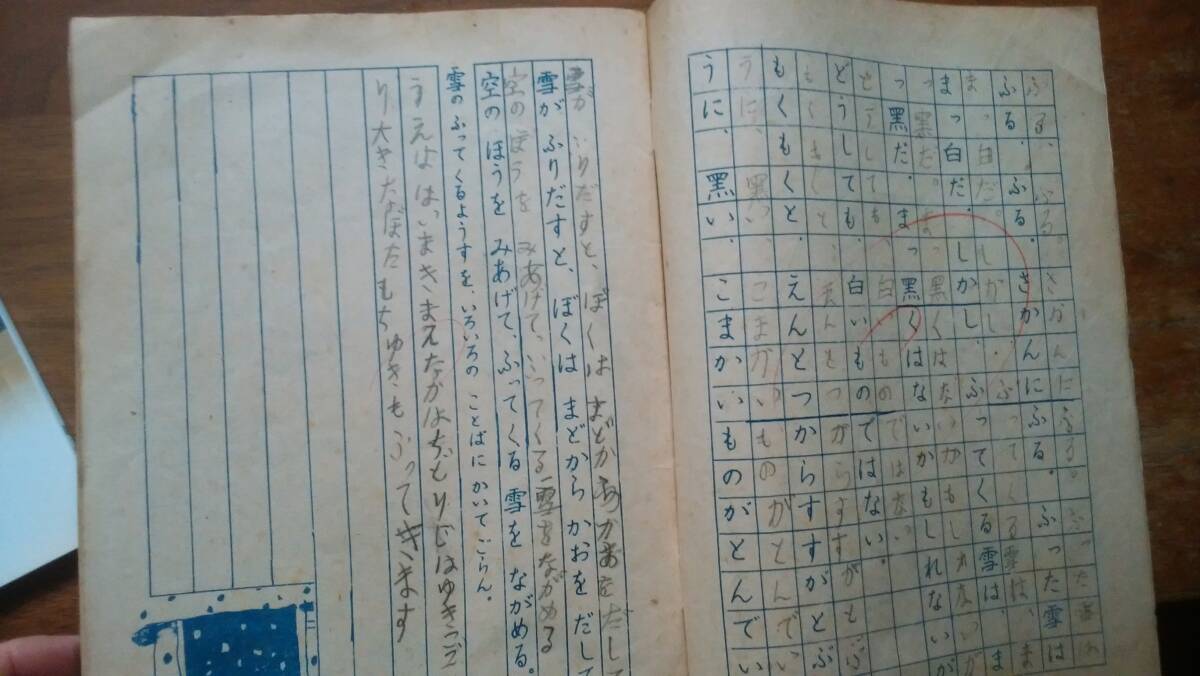 ふる、ふる。さかんにふる。ふった雪は
ふる、ふる。さかんにふる。ふった雪は
まっ白だ。しかし、ふってくる雪は、ま
まっ白だ。しかし、ふってくる雪は、ま
っ黒だ。まっ黒くはないかもしれないが
っ黒だ。まっ黒くはないかもしれないが
どうしても、白いものではない。
どうしても、白いものではない。
もくもくと、えんとつからすすがとぶ
もくもくと、えんとつからすすがとぶ
うに、黒い、こまかいものがとんでい
うに、黒い、こまかいものがとんでい
雪が ふりだすと、ぼくは まどからかおをだして
雪が ふりだすと、ぼくは まどから かおを だして
空のほうを みあげて、ふってくる雪をながめる
空の ほうを みあげて、ふってくる 雪を ながめる。
雪の ふってくるようすを、いろいろの ことばに かいてごらん。
り大きなぼたもちゆきもふってきます